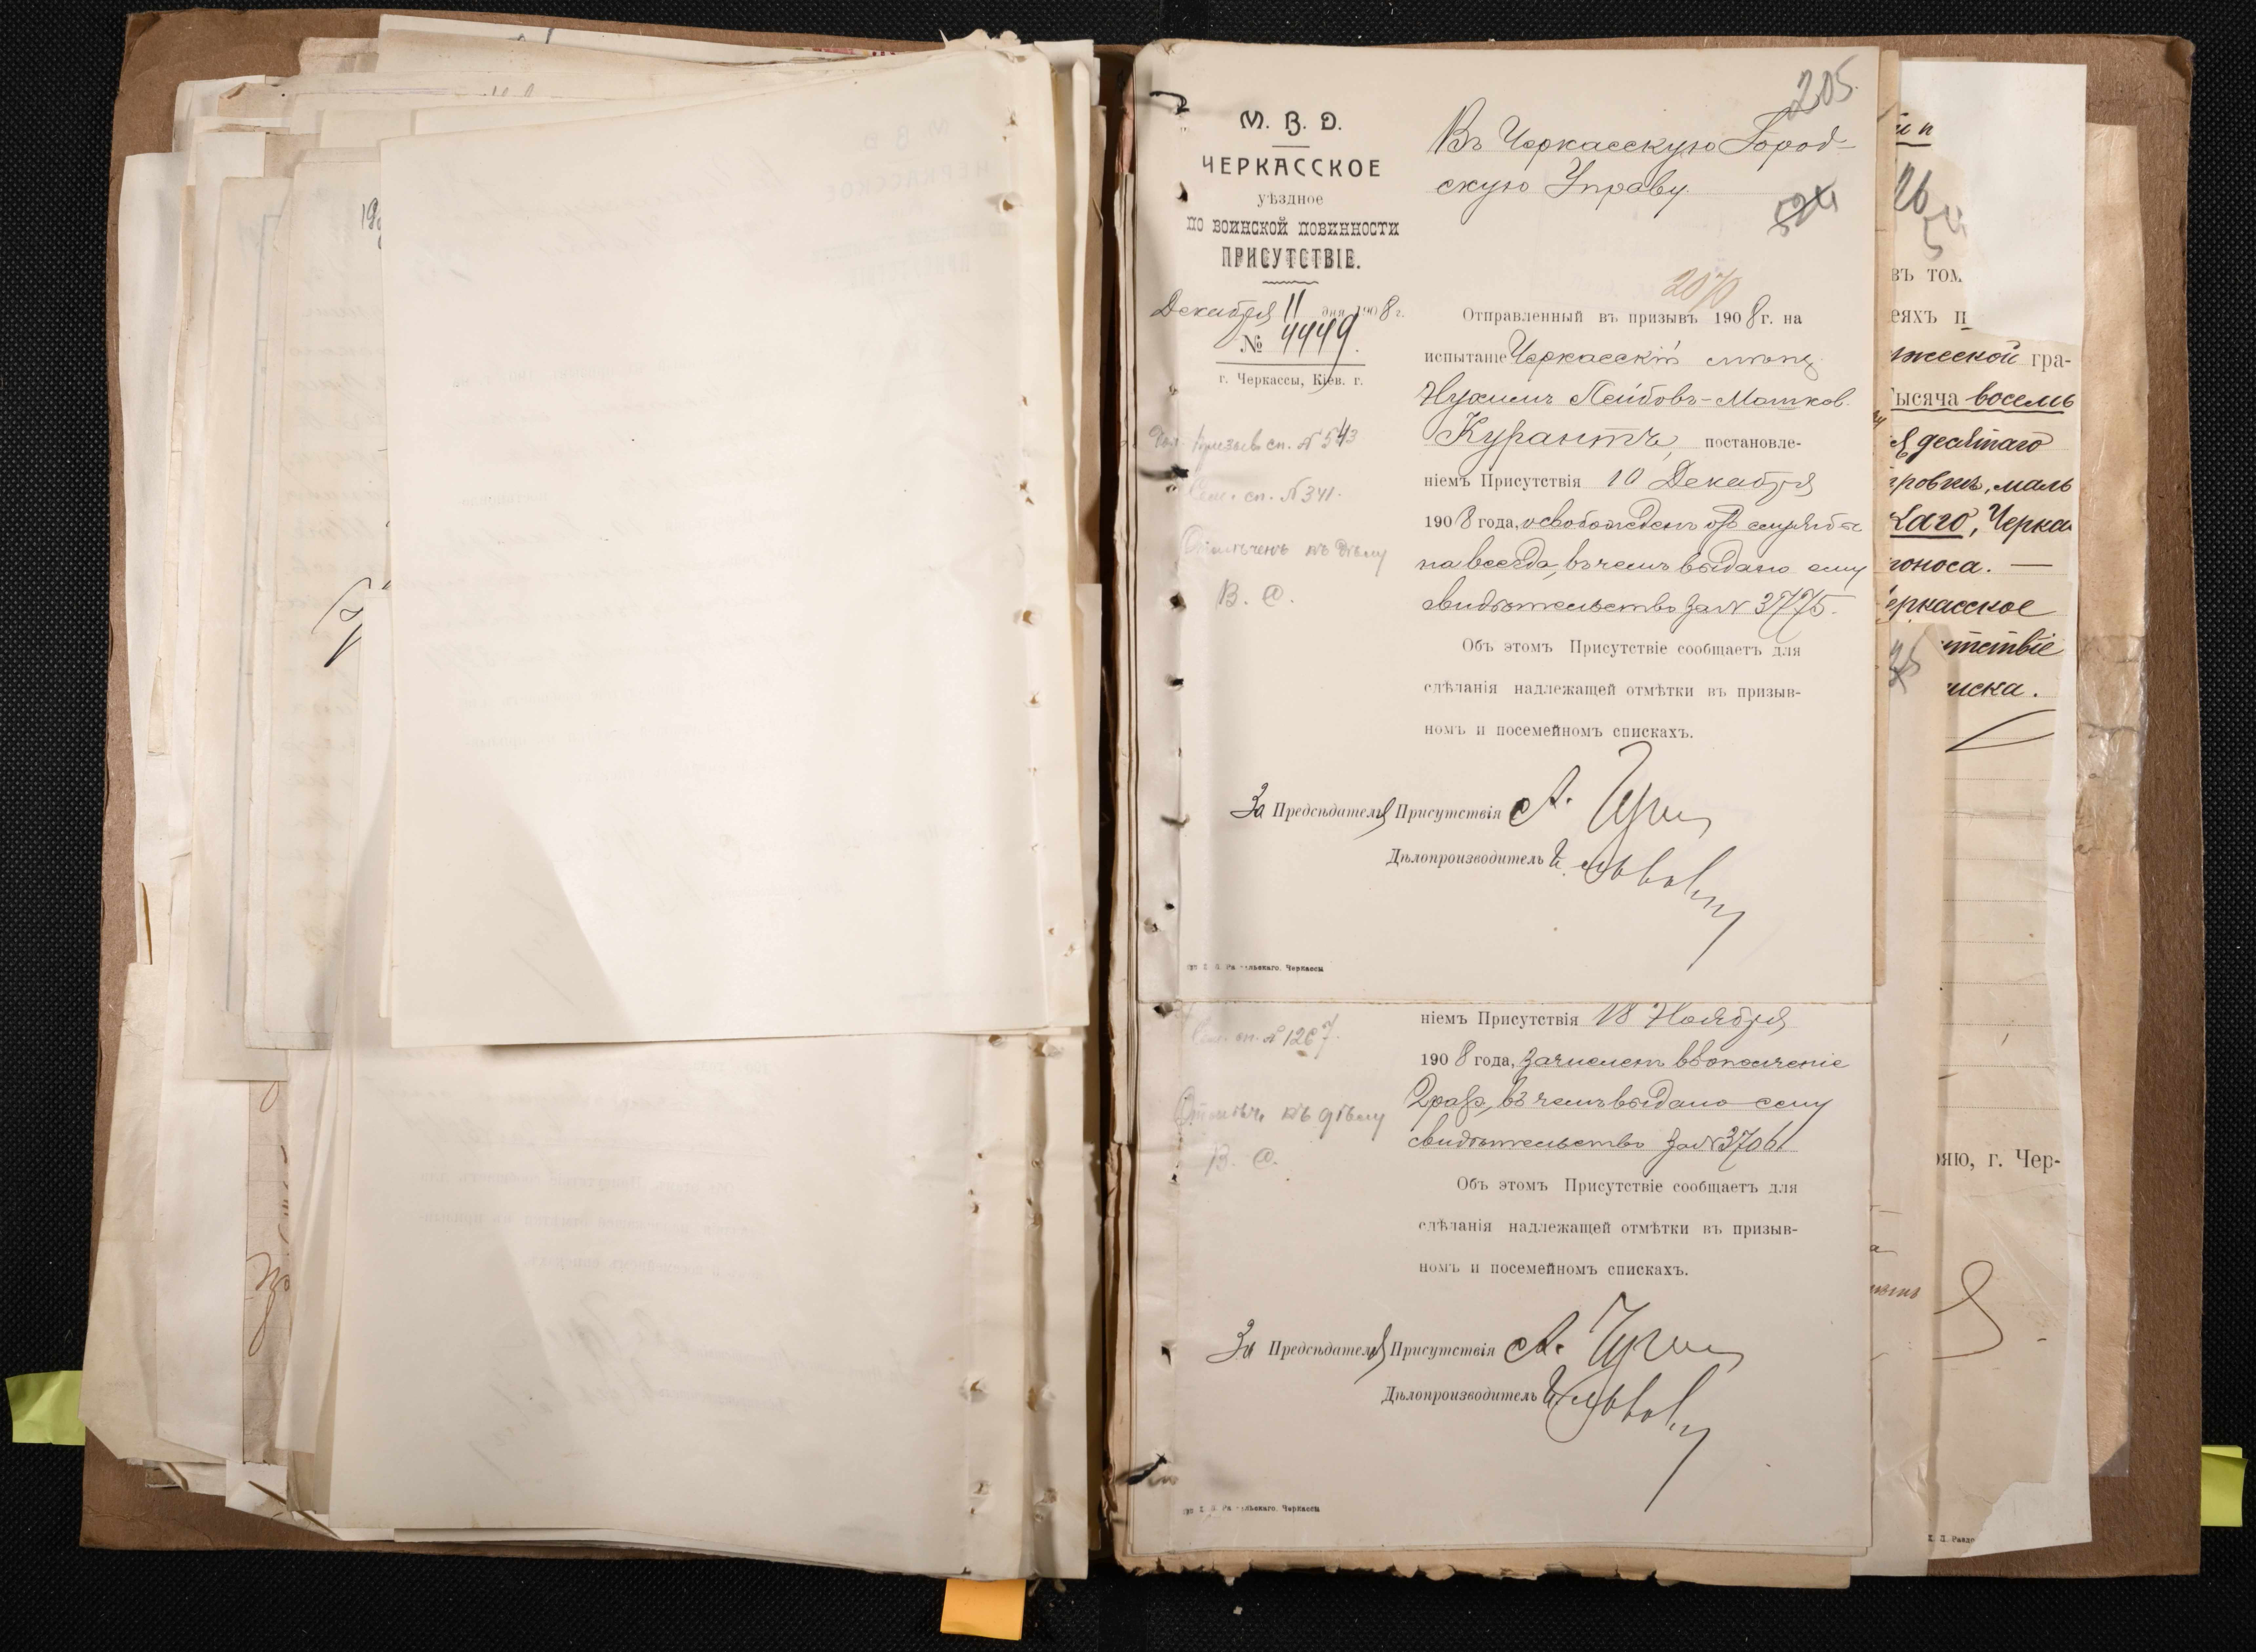 205
М. В. Д.
ЧЕРКАССКОЕ
уѣздное
ПО ВОИНСКОЙ ПОВИННОСТИ
ПРИСУТСТВІЕ.
Декабря 11 дня 1908 г.
№ 4449.
г. Черкассы, Кіев. г.
Призыв. сп. № 543
Сем. сп. № 341.
Отмѣченъ къ дѣлу
В. С.
Въ Черкасскую Город-
скую Управу.
524
2070
Отправленный въ призывъ 1908 г. на
испытаніе Черкасскій мѣщ.
Нухимъ Лейбовъ-Мотков.
Курантъ, постановле-
ніемъ Присутствія 10 Декабря
1908 года, освобожденъ отъ службы
навсегда, въ чемъ выдано ему
свидѣтельство за № 3775.
Объ этомъ Присутствіе сообщаетъ для
сдѣланія надлежащей отмѣтки въ призыв-
номъ и посемейномъ спискахъ.
За Предсѣдателя Присутствія А.
Дѣлопроизводитель
Черкассы
Сем. сп. № 1267.
Отмѣч. къ дѣлу
В. С.
ніемъ Присутствія 18 Ноября
1908 года, зачисленъ въ ополченіе
2 разр., въ чемъ выдано ему
свидѣтельство за № 3706
Объ этомъ Присутствіе сообщаетъ для
сдѣланія надлежащей отмѣтки въ призыв-
номъ и посемейномъ спискахъ.
За Предсѣдателя Присутствія А.
Дѣлопроизводитель
Черкассы
26
въ том
еяхъ п
жеской гра-
тысяча восемь
я десятаго
ровкѣ, маль
каго, Черка
оноса. —
еркасское
утствіе
иска.
ряю, г. Чер-